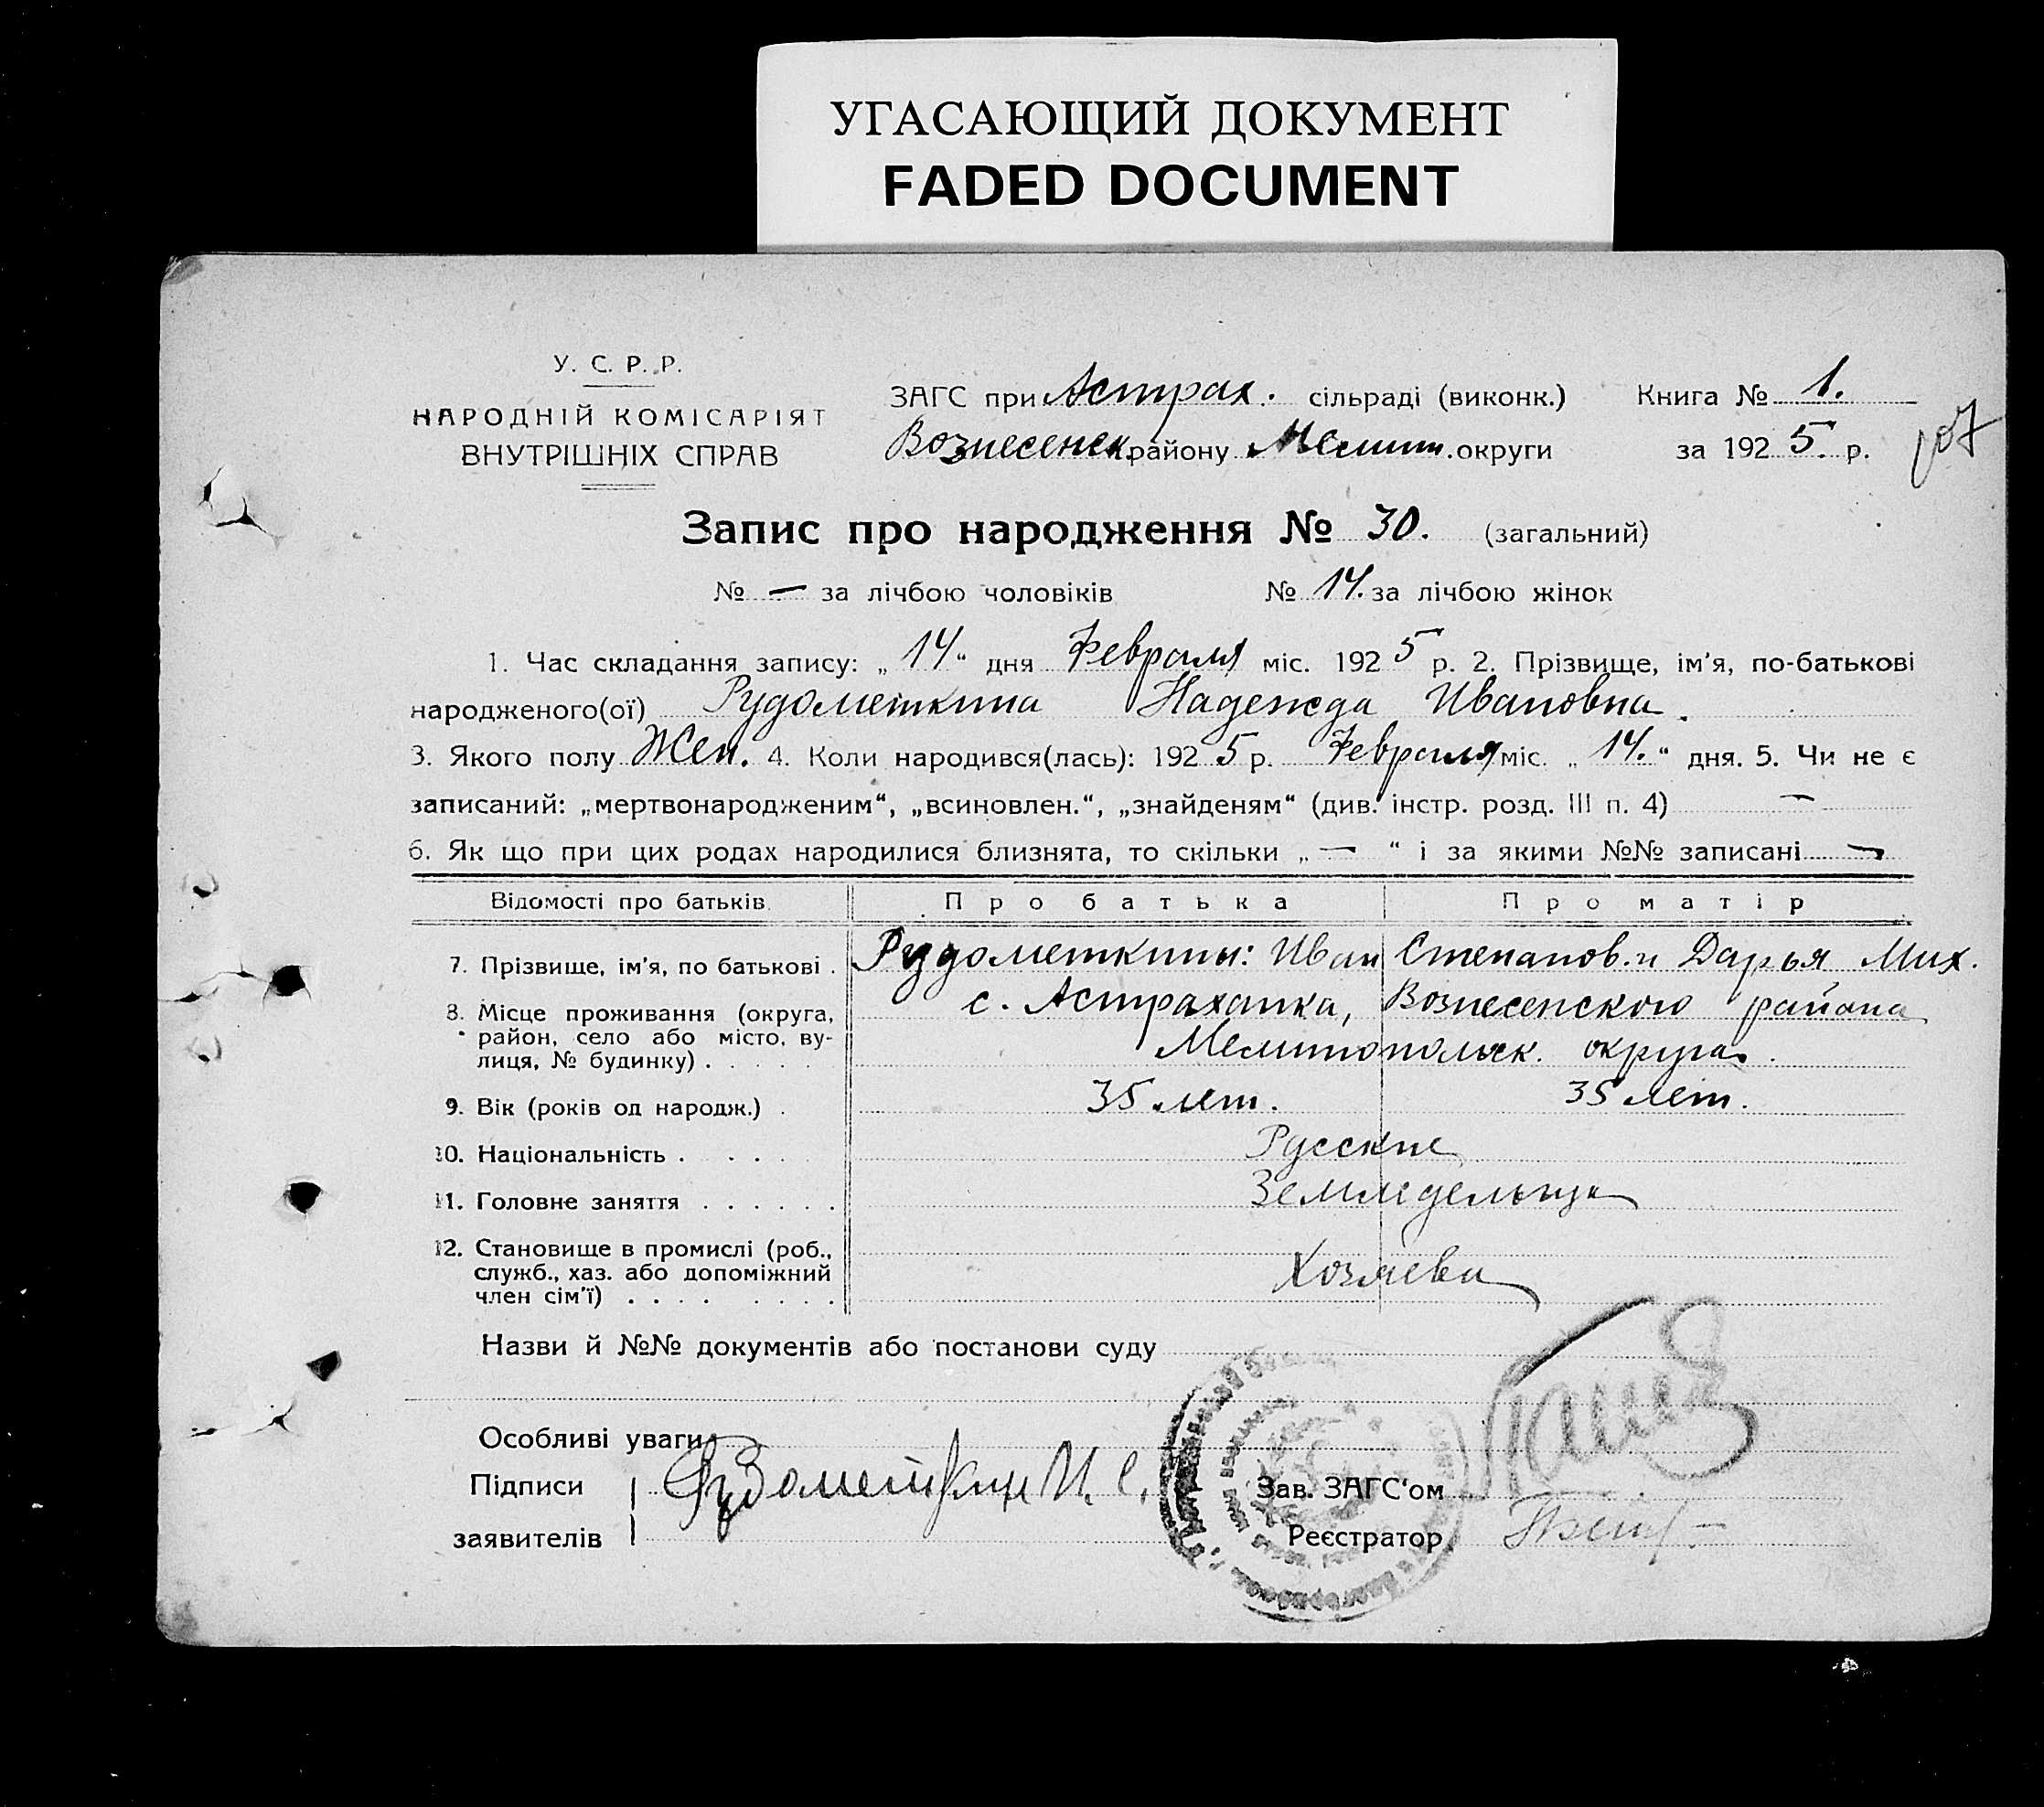 УГАСАЮЩИЙ ДОКУМЕНТ
FADED DOCUMENT
У. С. Р. Р.
НАРОДНІЙ КОМІСАРІЯТ
ВНУТРІШНІХ СПРАВ
ЗАГС при Астрах. сільраді (виконк.) Книга № 1.
Вознесенск. району Мелит. округи за 1925. р.
107
Запис про народження № 30. (загальний)
№ — за лічбою чоловіків № 14. за лічбою жінок
1. Час складання запису: „14“ дня Февраля міс. 1925 р. 2. Прізвище, ім'я, по-батькові
народженого(ої) Рудометкина Надежда Ивановна.
3. Якого полу Жен. 4. Коли народився(лась): 1925 р. Февраля міс. „14.“ дня. 5. Чи не є
записаний: „мертвонародженим“, „всиновлен.“, „знайденям“ (див. інстр. розд. III п. 4) —
6. Як що при цих родах народилися близнята, то скільки „—“ і за якими №№ записані —
Відомості про батьків Про батька Про матір
7. Прізвище, ім'я, по батькові . Рудометкины: Иван Степанов. и Дарья Мих.
8. Місце проживання (округа, район, село або місто, вулиця, № будинку) . . . . . с. Астраханка, Вознесенского района
Мелитопольск. округа.
9. Вік (років од народж.) . 35 лет. 35 лет.
10. Національність . . . . Русские
11. Головне заняття . . . . . . Земледельцы
12. Становище в промислі (роб.,
служб., хаз. або допоміжний
член сім'ї) . . . . . . . . Хозяева
Назви й №№ документів або постанови суду
Особливі уваги
Підписи
заявителів
Рудометкин И. С.
Зав. ЗАГС'ом
Реєстратор